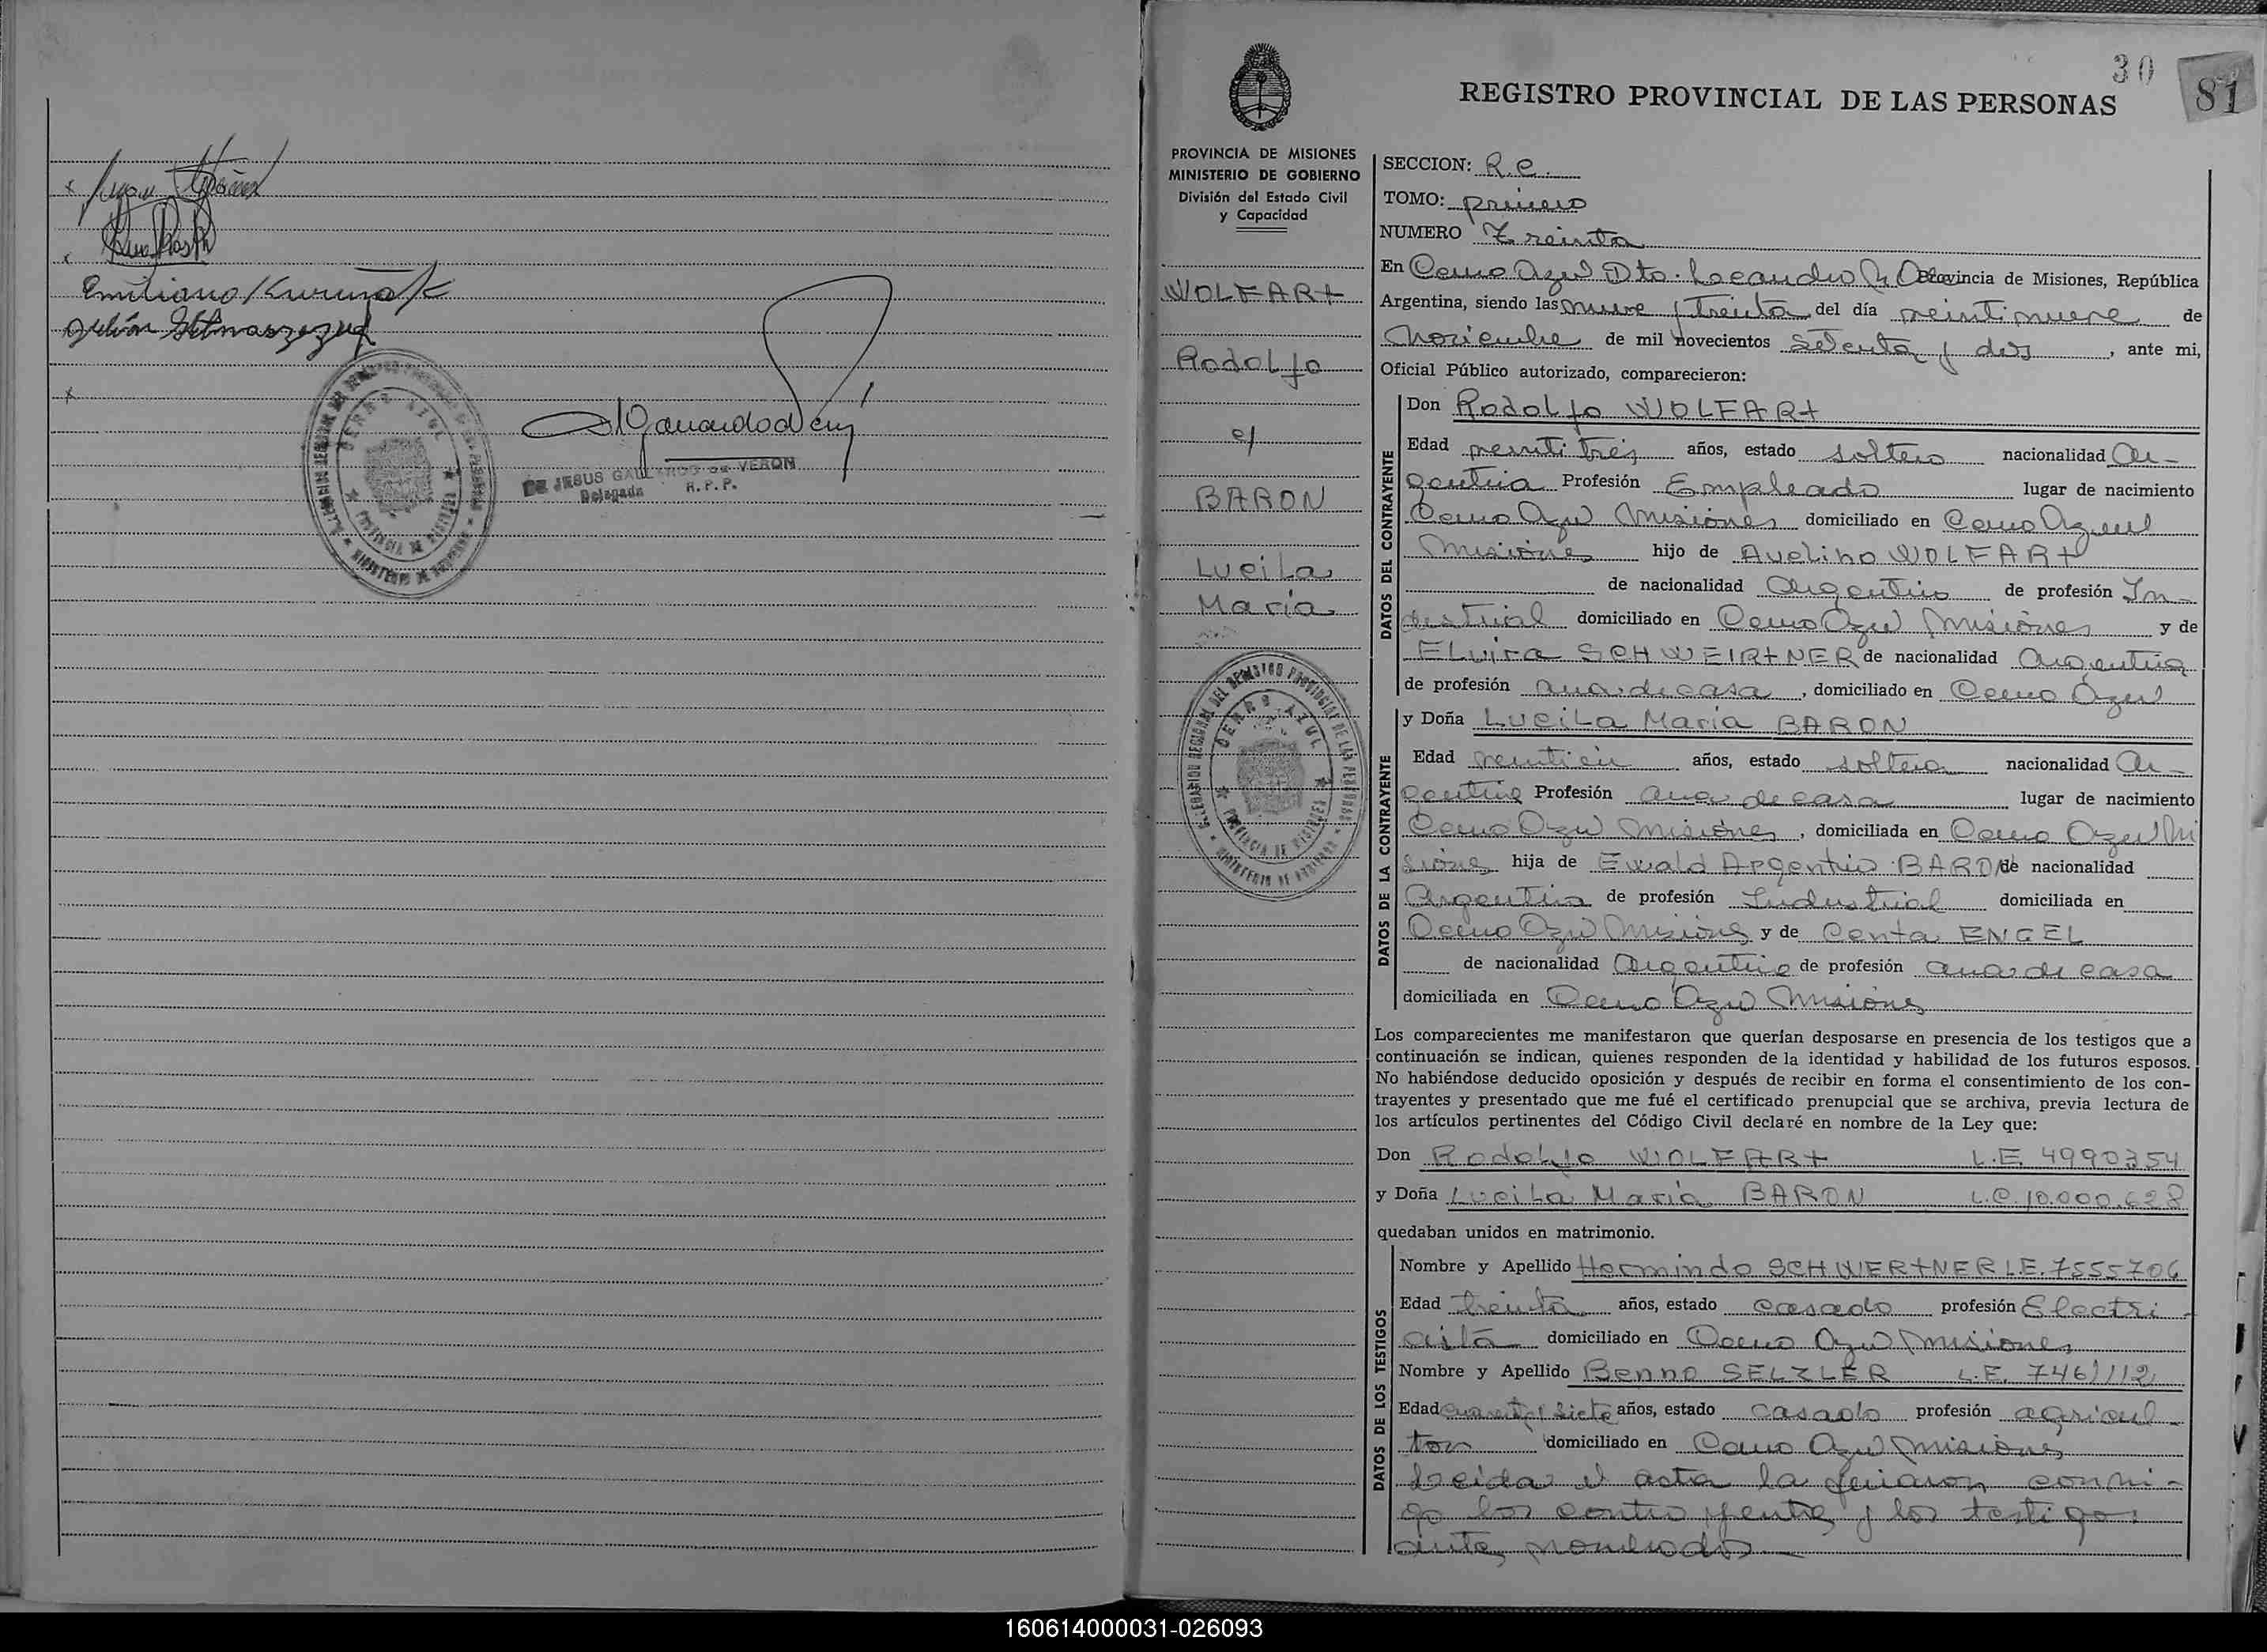 Emiliano
DE JESUS GALLARDO DE VERON
Delegada R.P.P.
30
81
REGISTRO PROVINCIAL DE LAS PERSONAS
PROVINCIA DE MISIONES
MINISTERIO DE GOBIERNO
División del Estado Civil
y Capacidad
WOLFARt
Rodolfo
c/
BARON
Lucila
María
SECCION: R.C.
TOMO: primero
NUMERO Treinta
En Cerro Azul Dto. Leandro N. Alem Provincia de Misiones, República
Argentina, siendo las nueve y treinta del día veintinueve de
Noviembre de mil novecientos setenta y dos, ante mi,
Oficial Público autorizado, comparecieron:
DATOS DEL CONTRAYENTE
Don Rodolfo WOLFARt
Edad veinti tres años, estado soltero nacionalidad Ar-
gentina Profesión Empleado lugar de nacimiento
Cerro Azul Misiones domiciliado en Cerro Azul
Misiones hijo de Avelino WOLFARt
de nacionalidad Argentino de profesión In-
dustrial domiciliado en Cerro Azul Misiones y de
Elvira SCHWEIRtNER de nacionalidad Argentina
de profesión ama de casa, domiciliado en Cerro Azul
DATOS DE LA CONTRAYENTE
y Doña Lucila María BARON
Edad veintiun años, estado soltera nacionalidad Ar-
gentina Profesión ama de casa lugar de nacimiento
Cerro Azul Misiones, domiciliada en Cerro Azul Mi
siones hija de Ewald Argentino BARON de nacionalidad
Argentina de profesión Industrial domiciliada en
Cerro Azul Misiones y de Centa ENGEL
de nacionalidad Argentina de profesión ama de casa
domiciliada en Cerro Azul Misiones
Los comparecientes me manifestaron que querían desposarse en presencia de los testigos que a
continuación se indican, quienes responden de la identidad y habilidad de los futuros esposos.
No habiéndose deducido oposición y después de recibir en forma el consentimiento de los con-
trayentes y presentado que me fué el certificado prenupcial que se archiva, previa lectura de
los artículos pertinentes del Código Civil declaré en nombre de la Ley que:
Don Rodolfo WOLFARt L.E. 4990354
y Doña Lucila María BARON L.C. 10.000.628
quedaban unidos en matrimonio.
DATOS DE LOS TESTIGOS
Nombre y Apellido Hermindo SCHWERtNER L.E. 7555706
Edad treinta años, estado casado profesión Electri-
cista domiciliado en Cerro Azul Misiones
Nombre y Apellido Benno SELZLER L.E. 7461112
Edad cuarenta y siete años, estado casado profesión agricul-
tor domiciliado en Cerro Azul Misiones
Leida el acta la firmaron conmi-
go los contrayentes y los testigos
antes nombrados
160614000031-026093